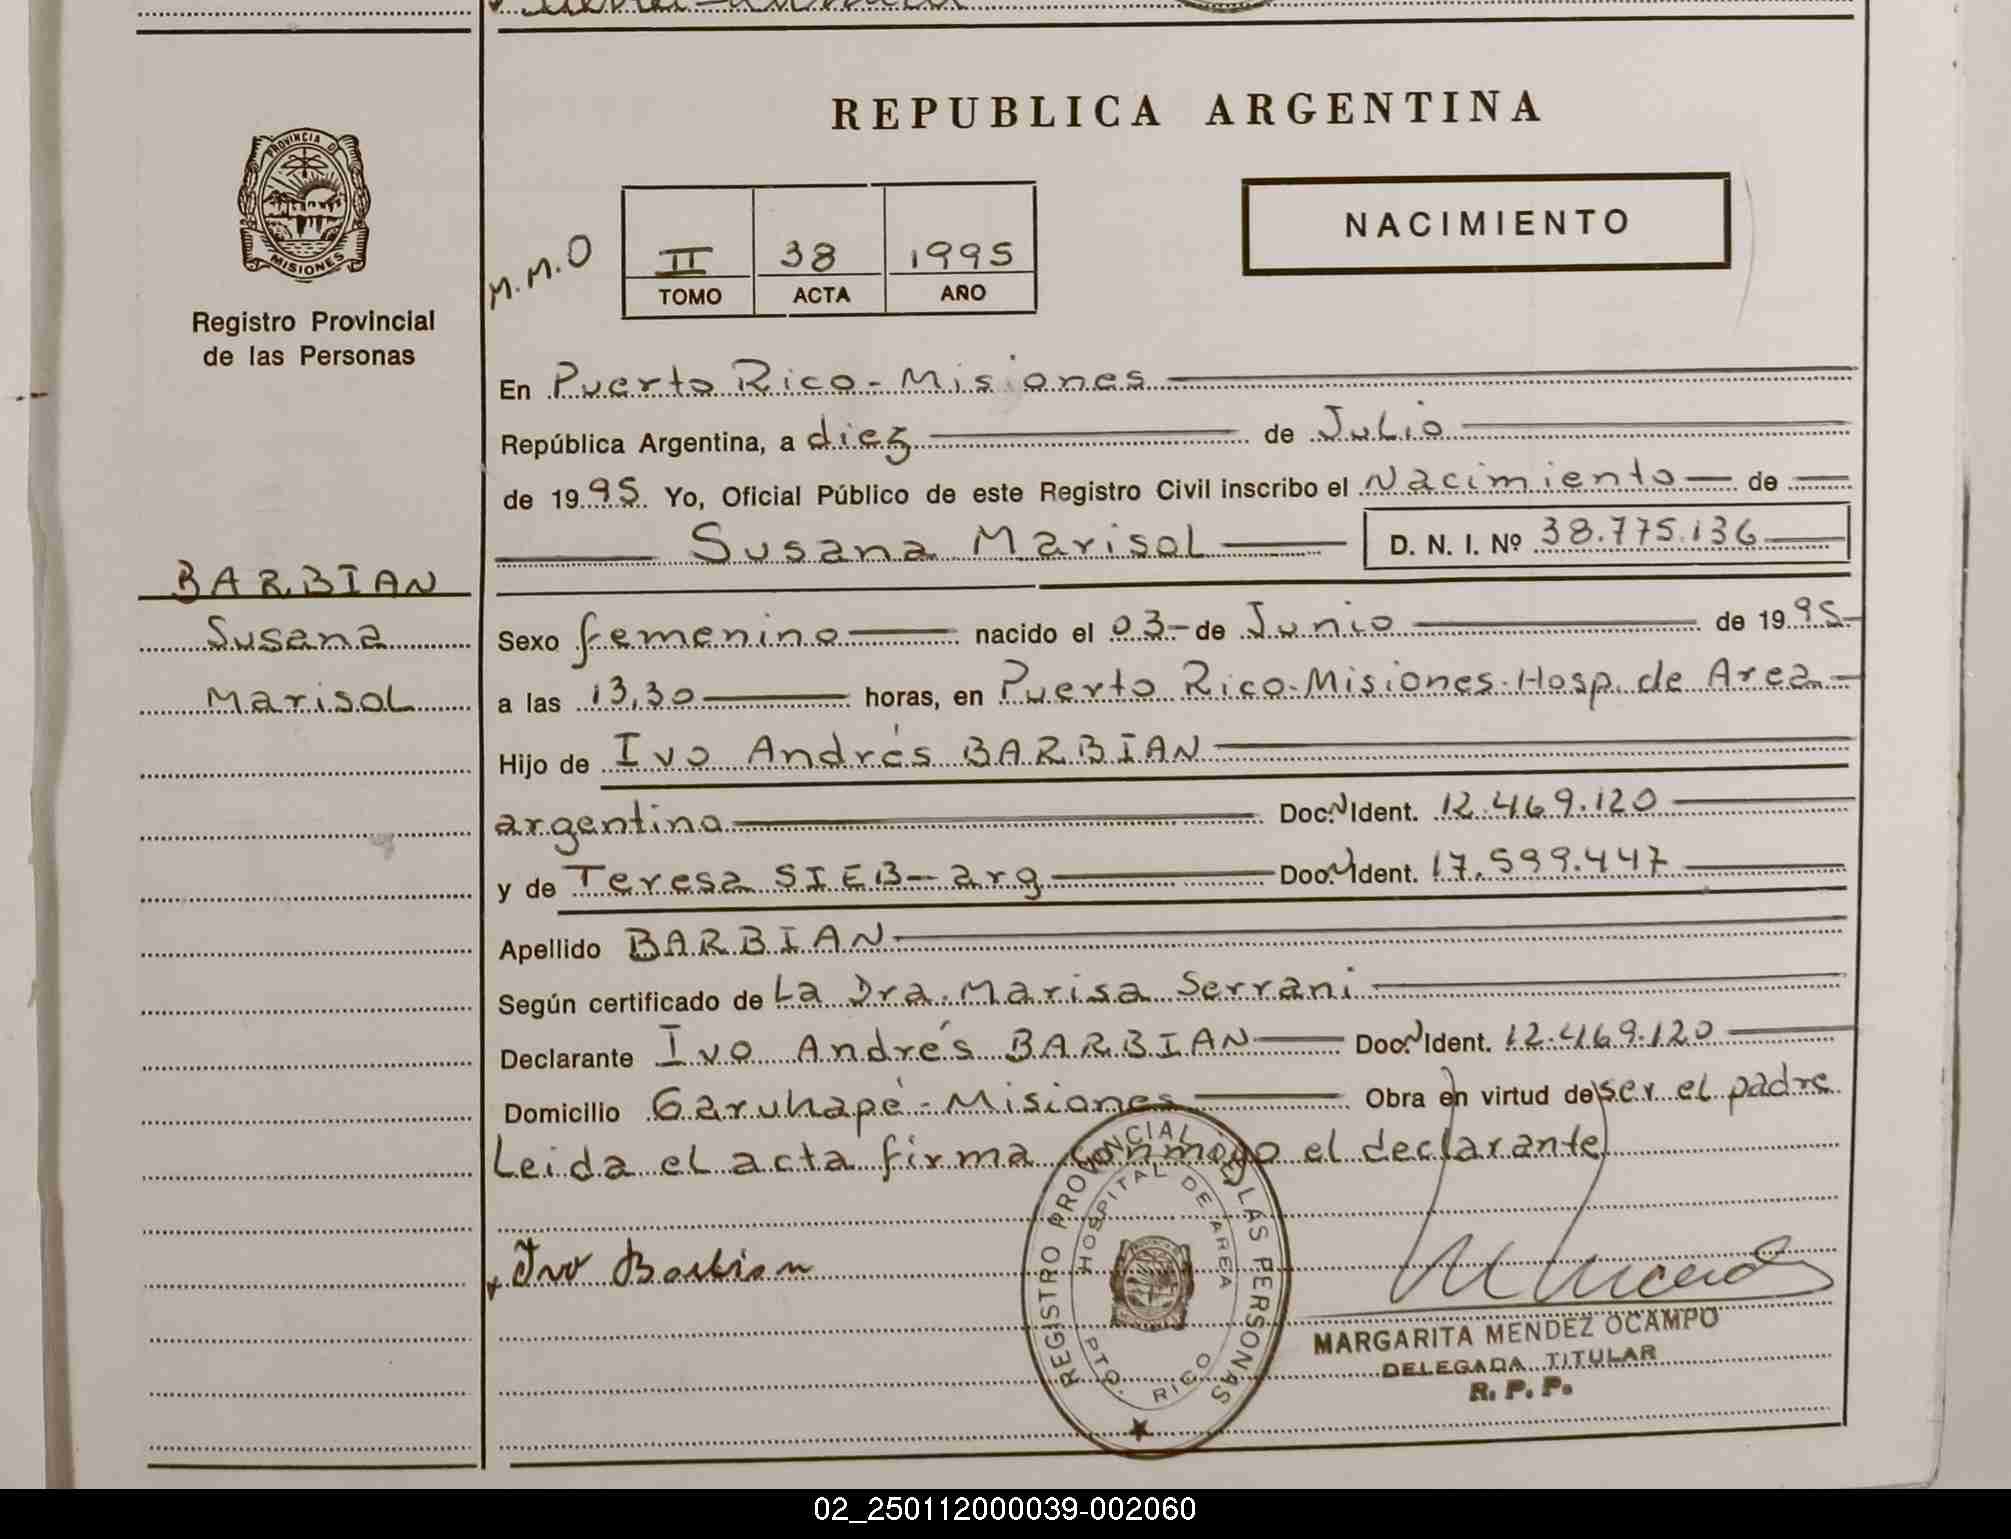 REPUBLICA ARGENTINA
PROVINCIA D
MISIONES
Registro Provincial
de las Personas
NACIMIENTO
M.M.O
II 38 1995
TOMO ACTA AÑO
En Puerto Rico - Misiones
República Argentina, a diez de Julio
de 1995 Yo, Oficial Público de este Registro Civil inscribo el Nacimiento de
Susana Marisol D. N. I. Nº 38.775.136
BARBIAN
Susana
Marisol
Sexo femenino nacido el 03 - de Junio de 1995
a las 13,30 horas, en Puerto Rico - Misiones - Hosp. de Area
Hijo de Ivo Andrés BARBIAN
argentino Doc. Ident. 12.469.120
y de Teresa SIEB - arg Doc. Ident. 17.599.447
Apellido BARBIAN
Según certificado de La Dra. Marisa Serrani
Declarante Ivo Andrés BARBIAN Doc. Ident. 12.469.120
Domicilio Garuhapé - Misiones Obra en virtud de ser el padre
Leida el acta firma conmigo el declarante
Ivo Barbian
REGISTRO PROVINCIAL DE LAS PERSONAS
HOSPITAL DE AREA
PTO. RICO
MARGARITA MENDEZ OCAMPO
DELEGADA TITULAR
R. P. P.
02_250112000039-002060